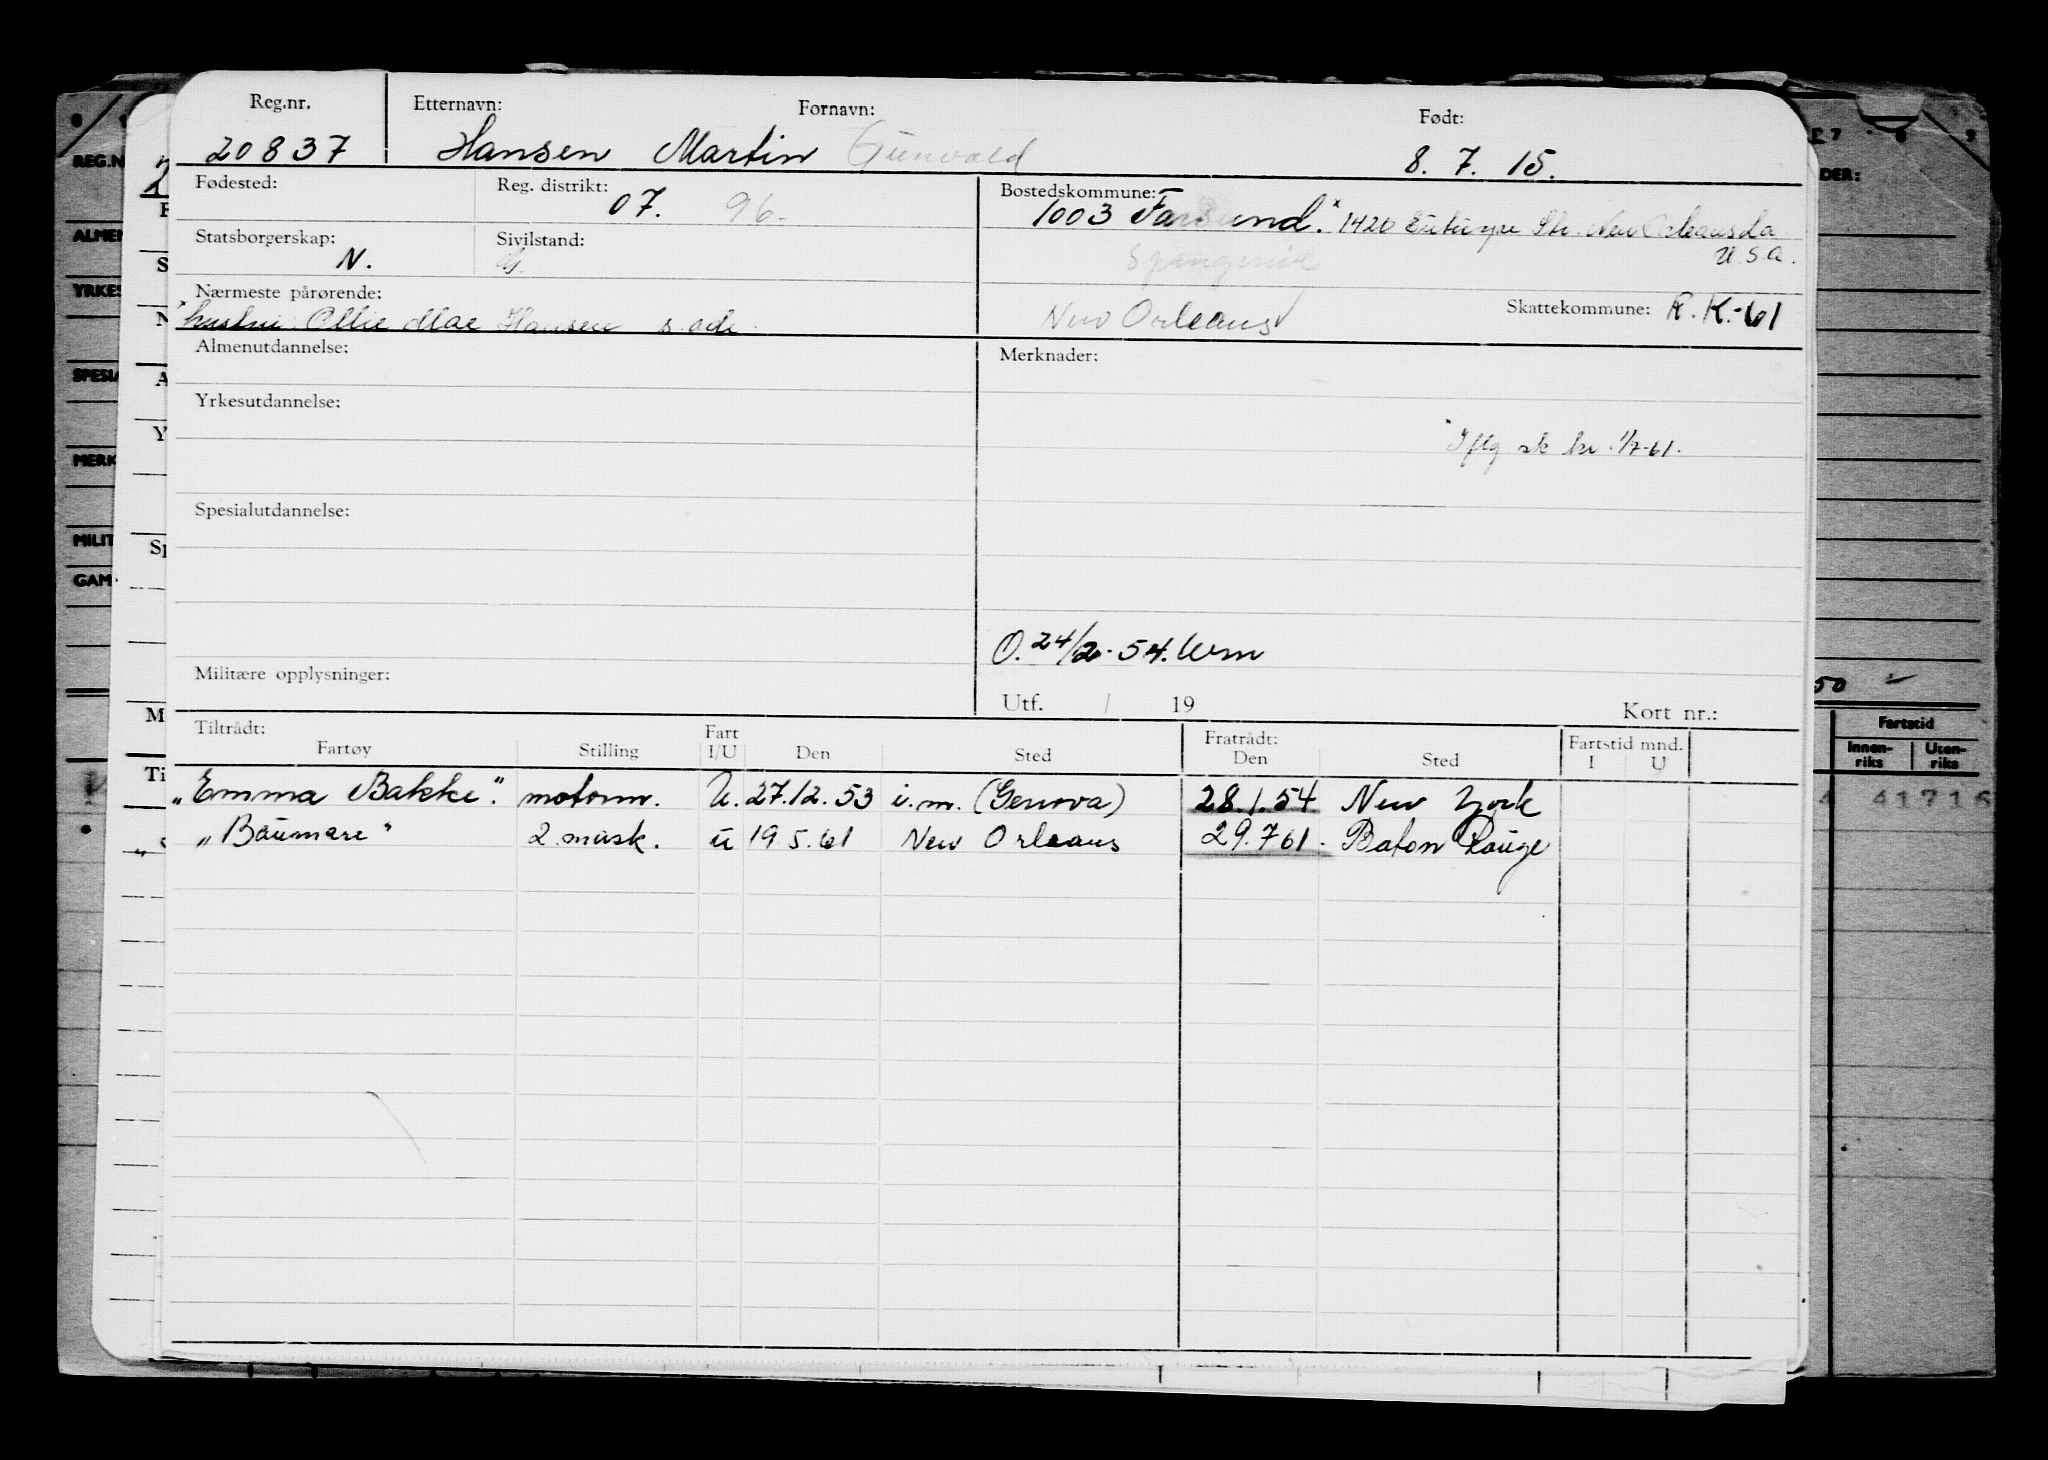 Reg.nr. Etternavn: Fornavn: Født:
20837 Hansen Martin Gunvald 8. 7. 15.
Fødested: Reg. distrikt: 07. 96. Bostedskommune: 1003 Farsund. * 1420 Euterpe Str. New Orleans La
U.S.A.
Statsborgerskap: N. Sivilstand: Spangereid
Nærmeste pårørende: New Orleans Skattekommune: R.K.-61
* hustru: Ollie Mae Hansen s. adr.
Almenutdannelse: Merknader:
Yrkesutdannelse:
* Iflg sk kr. 1/7-61.
Spesialutdannelse:
O. 24/2-54. Wm
Militære opplysninger:
Utf. / 19 Kort nr.:
Tiltrådt: Fart Fratrådt: Fartstid mnd.
Fartøy Stilling I/U Den Sted Den Sted I U
"Emma Bakke". motorm. U. 27.12.53 i.m. (Genova) 28.1.54 New York
"Baumare" 2 mask. u 19 5.61 New Orleans 29.7 61. Baton Rouge
REG.N
ALMEN
YRKES
SPESIA
MERK
MILIT
GAM
DER:
7 8 9
50
Fartstid
Innen-riks Uten-riks
4 41716
A
Y
Sp
M
Ti